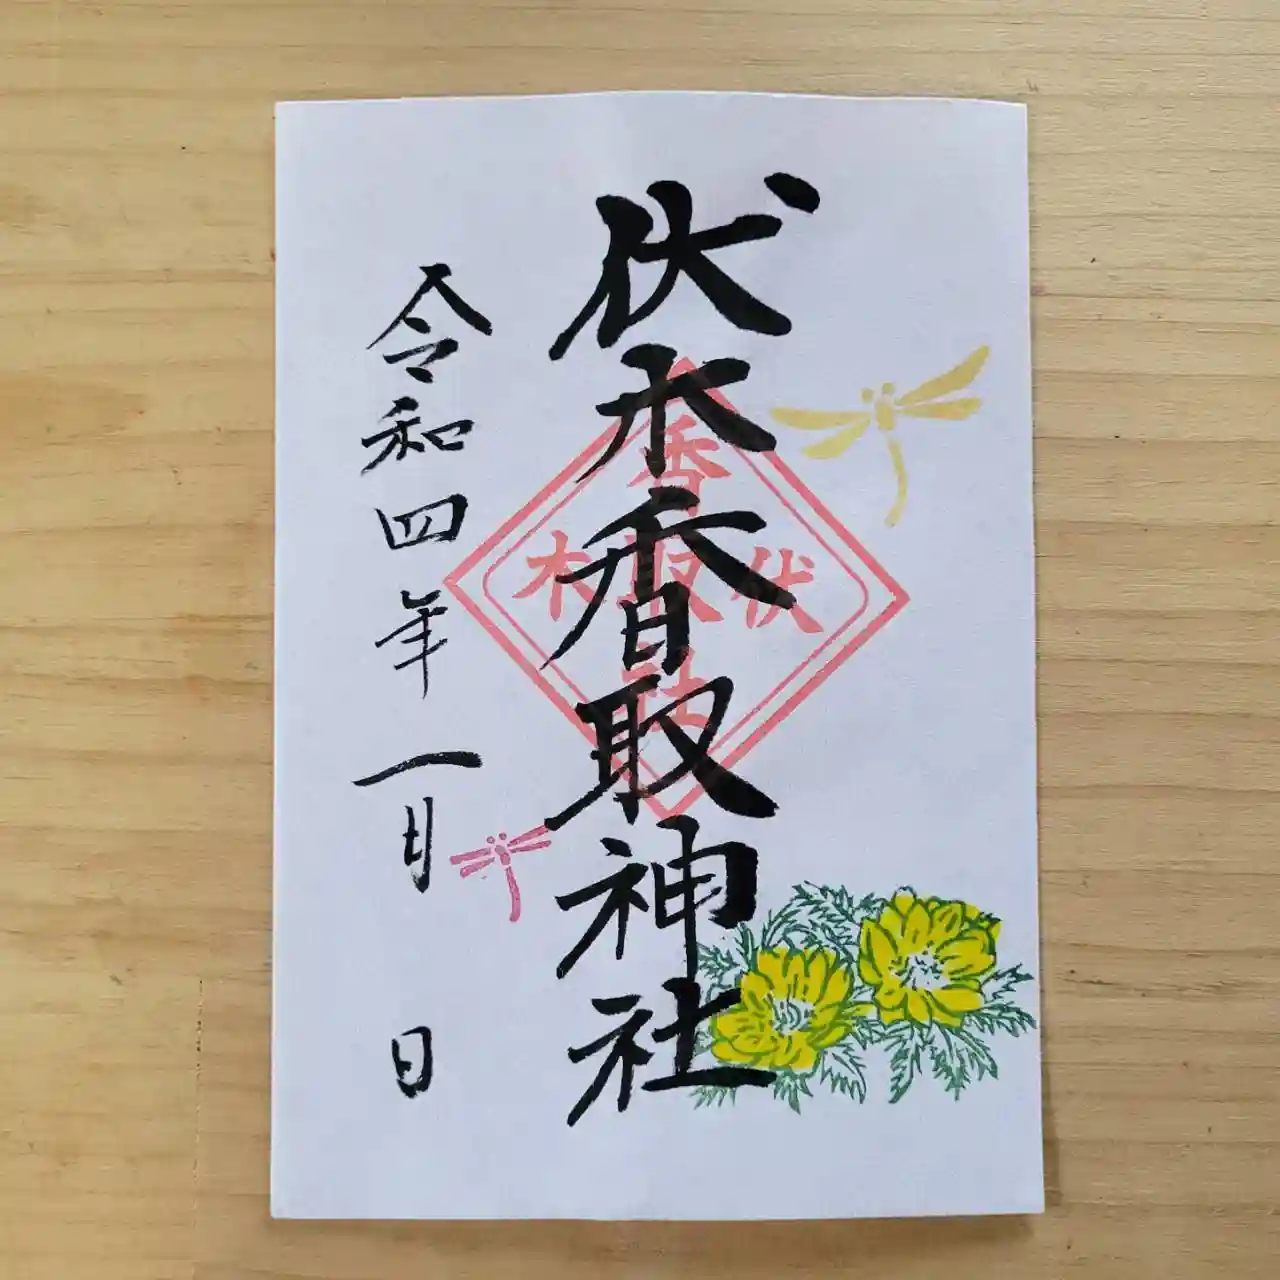 伏木香取神社
香
伏取木
社
令和四年一月 日